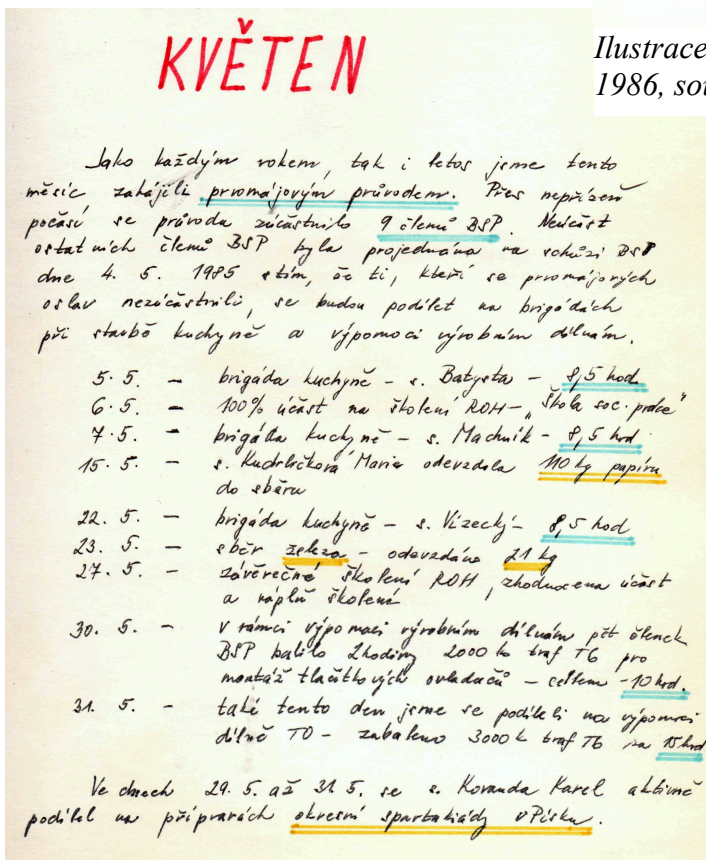 KVĚTEN
Ilustrace
1986, sou
Jako každým rokem, tak i letos jsme tento
měsíc zahájili prvomájovým průvodem. Přes nepřízeň
počasí se průvodu zúčastnilo 9 členů BSP. Neúčast
ostatních členů BSP byla projednána na schůzi BSP
dne 4. 5. 1985 s tím, že ti, kteří se prvomájových
oslav nezúčastnili, se budou podílet na brigádách
při stavbě kuchyně a výpomoci výrobním dílnám.
5. 5. – brigáda kuchyně – s. Batysta – 8,5 hod
6. 5. – 100% účast na školení ROH – „Škola soc. práce"
7. 5. – brigáda kuchyně – s. Machník – 8,5 hod.
15. 5. – s. Kudrličková Marie odevzdala 110 kg papíru
do sběru
22. 5. – brigáda kuchyně – s. Vízecký – 8,5 hod
23. 5. – sběr železa – odevzdáno 21 kg
27. 5. – závěrečné školení ROH, zhodnocena účast
a náplň školení
30. 5. – v rámci výpomoci výrobním dílnám pět členek
BSP balilo 2 hodiny 2000 k traf T6 pro
montáž tlačítkových ovladačů – celkem – 10 hod.
31. 5. – také tento den jsme se podíleli na výpomoci
dílně TO – zabaleno 3000 k traf T6 za 15 hod
Ve dnech 29. 5. až 31. 5. se s. Koranda Karel aktivně
podílel na přípravách okresní spartakiády v Písku.